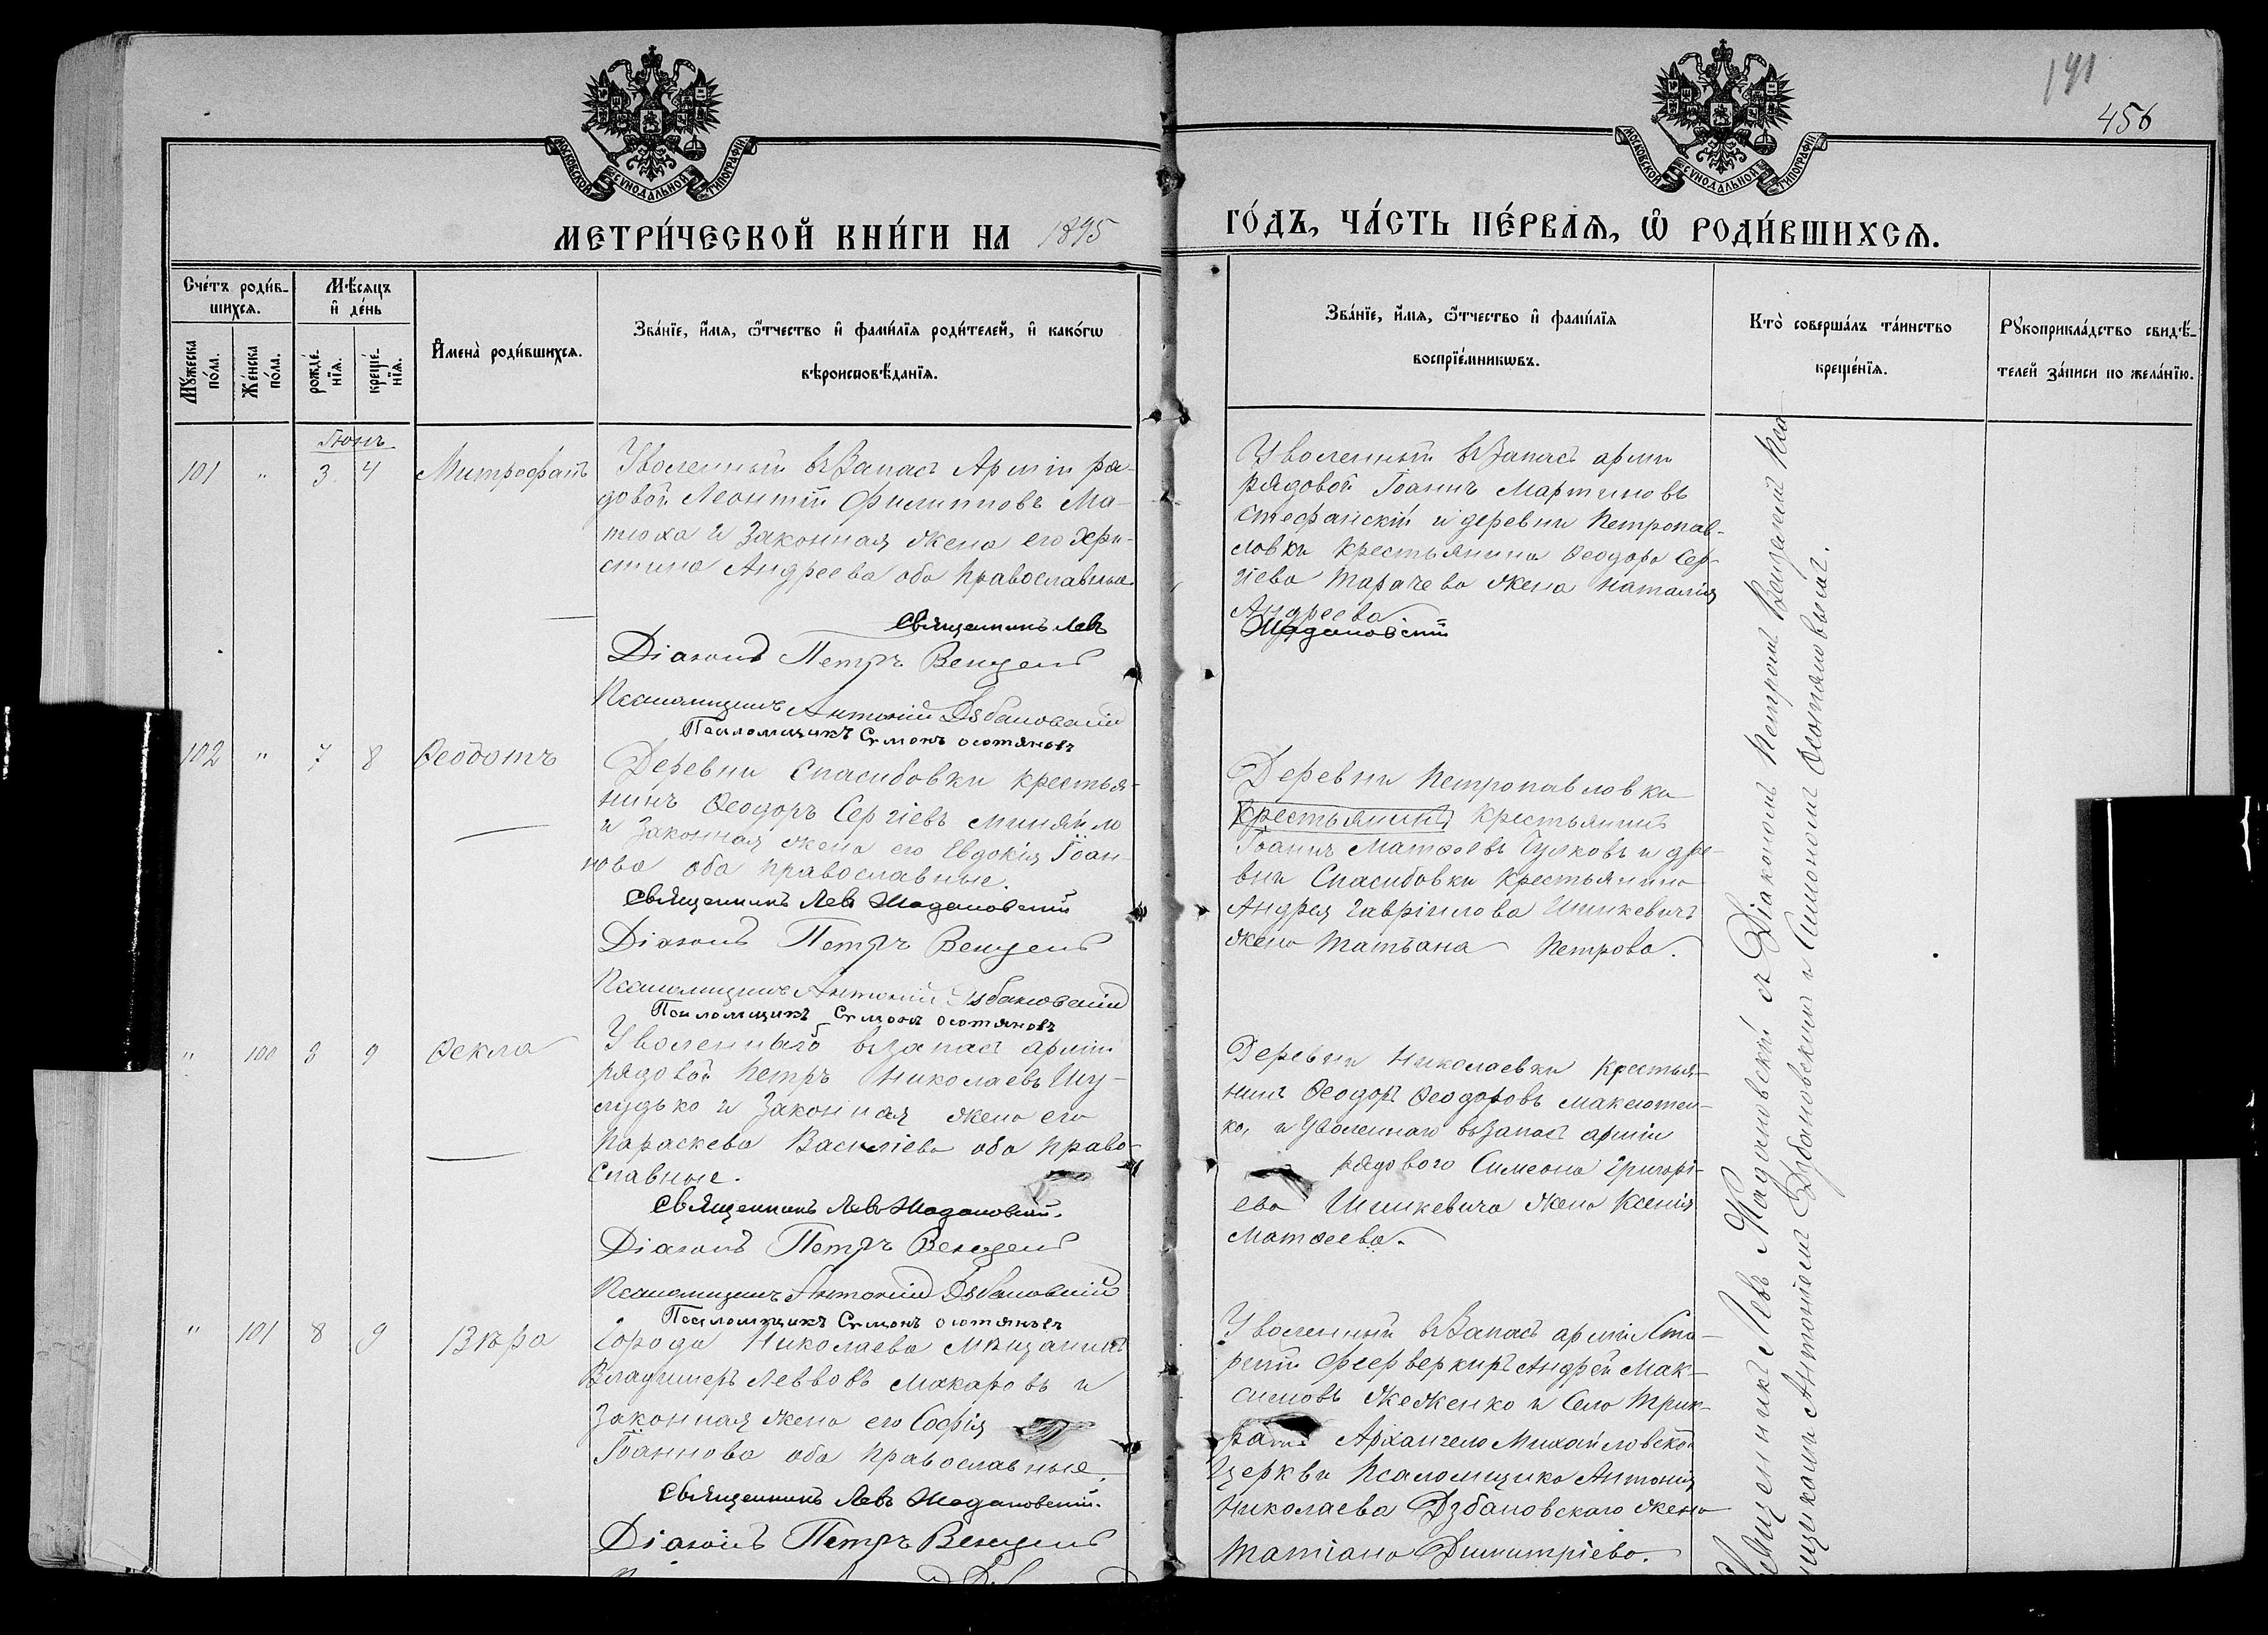 191
456
МОСКОВСКОЙ СѴНОДАЛЬНОЙ ТИПОГРАФІИ
МОСКОВСКОЙ СѴНОДАЛЬНОЙ ТИПОГРАФІИ
МЕТРИ́ЧЕСКОЙ КНИ́ГИ НА 1895
ГО́ДЪ, ЧА́СТЬ ПЕ́РВАѦ, Ѡ҆ РОДИ́ВШИХСѦ.
Сче́тъ роди́в-
шихсѧ.
Мꙋ́жеска по́ла.
Же́нска по́ла.
Мѣ́сѧцъ
и҆ де́нь
рожде́нїѧ.
креще́нїѧ.
И҆мена̀ роди́вшихсѧ.
Зва́нїе, и҆́мѧ, ѻ҆́тчество и҆ фами́лїѧ роди́телей, и҆ како́гѡ
вѣроисповѣ́данїѧ.
Зва́нїе, и҆́мѧ, ѻ҆́тчество и҆ фами́лїѧ
воспрїе́мникѡвъ.
Кто̀ соверша́лъ та́инство
креще́нїѧ.
Рꙋкоприкла́дство свидѣ́-
телей за́писи по жела́нїю.
Іюнь
101 " 3 4 Митрофанъ
Уволенный въ Запасъ Арміи ря-
довой Леонтій Филипповъ Ма-
тюха и Законная жена его Хри-
стина Андреева оба Православные
Священникъ Левъ
Діаконъ Петръ Венцель
Псаломщикъ Антоній Дзбановскій
Псаломщикъ Сѵмонъ Осотяновъ
Уволенный въ Запасъ арміи
рядовой Іоаннъ Мартиновъ
Стефанскій и деревни Петропав-
ловки крестьянина Ѳеодора Сер-
гіева Тарачева жена Наталія
Андреева
Жадановскій
102 " 7 8 Ѳеодотъ
Деревни Спасибовки крестья-
нинъ Ѳеодоръ Сергіевъ Миняйло
и Законная жена его Евдокія Іоан-
нова оба православные.
Священникъ Левъ Жадановскій
Діаконъ Петръ Венцель
Псаломщикъ Антоній Дзбановскій
Псаломщикъ Сѵмонъ Осотяновъ
Деревни Петропавловки
крестьянинъ крестьянинъ
Іоаннъ Матѳеевъ Гулковъ и дре-
вни Спасибовки Крестьянина
Андрея Гавріилова Шишкевичъ
жена Татьана Петрова.
" 100 8 9 Ѳекла
Уволенный въ Запасъ арміи
рядовой Петръ Николаевъ Шу-
лудько и Законная жена его
Параскева Василіева оба право-
славные.
Священникъ Левъ Жадановскій.
Діаконъ Петръ Венцель
Псаломщикъ Антоній Дзбановскій
Псаломщикъ Сѵмонъ Осотяновъ
Деревни Николаевки Крестья-
нинъ Ѳеодоръ Ѳеодоровъ Максютен-
ко, и Уволеннаго въ Запасъ арміи
рядового Симеона Григорі-
ева Шишкевича жена Ксенія
Матѳеева.
" 101 8 9 Вѣра
Города Николаева Мѣщанинъ
Владимеръ Левовъ Макаровъ и
Законная жена его Софія
Іоаннова оба православные.
Священникъ Левъ Жадановскій.
Діаконъ Петръ Венцель
Уволенный въ Запасъ арміи Ста-
ршій фееръеркиръ Андрей Мак-
симовъ Жеженко и Села Трик-
ратъ Архангело Михайловской
Церкви Псаломщика Антонія
Николаева Дзбановскаго жена
Татіана Димитріева.
Священникъ Левъ Жадановскій съ Діакономъ Петромъ Венцелемъ
Антоніемъ Дзбановскимъ и Симономъ Осотяновымъ.